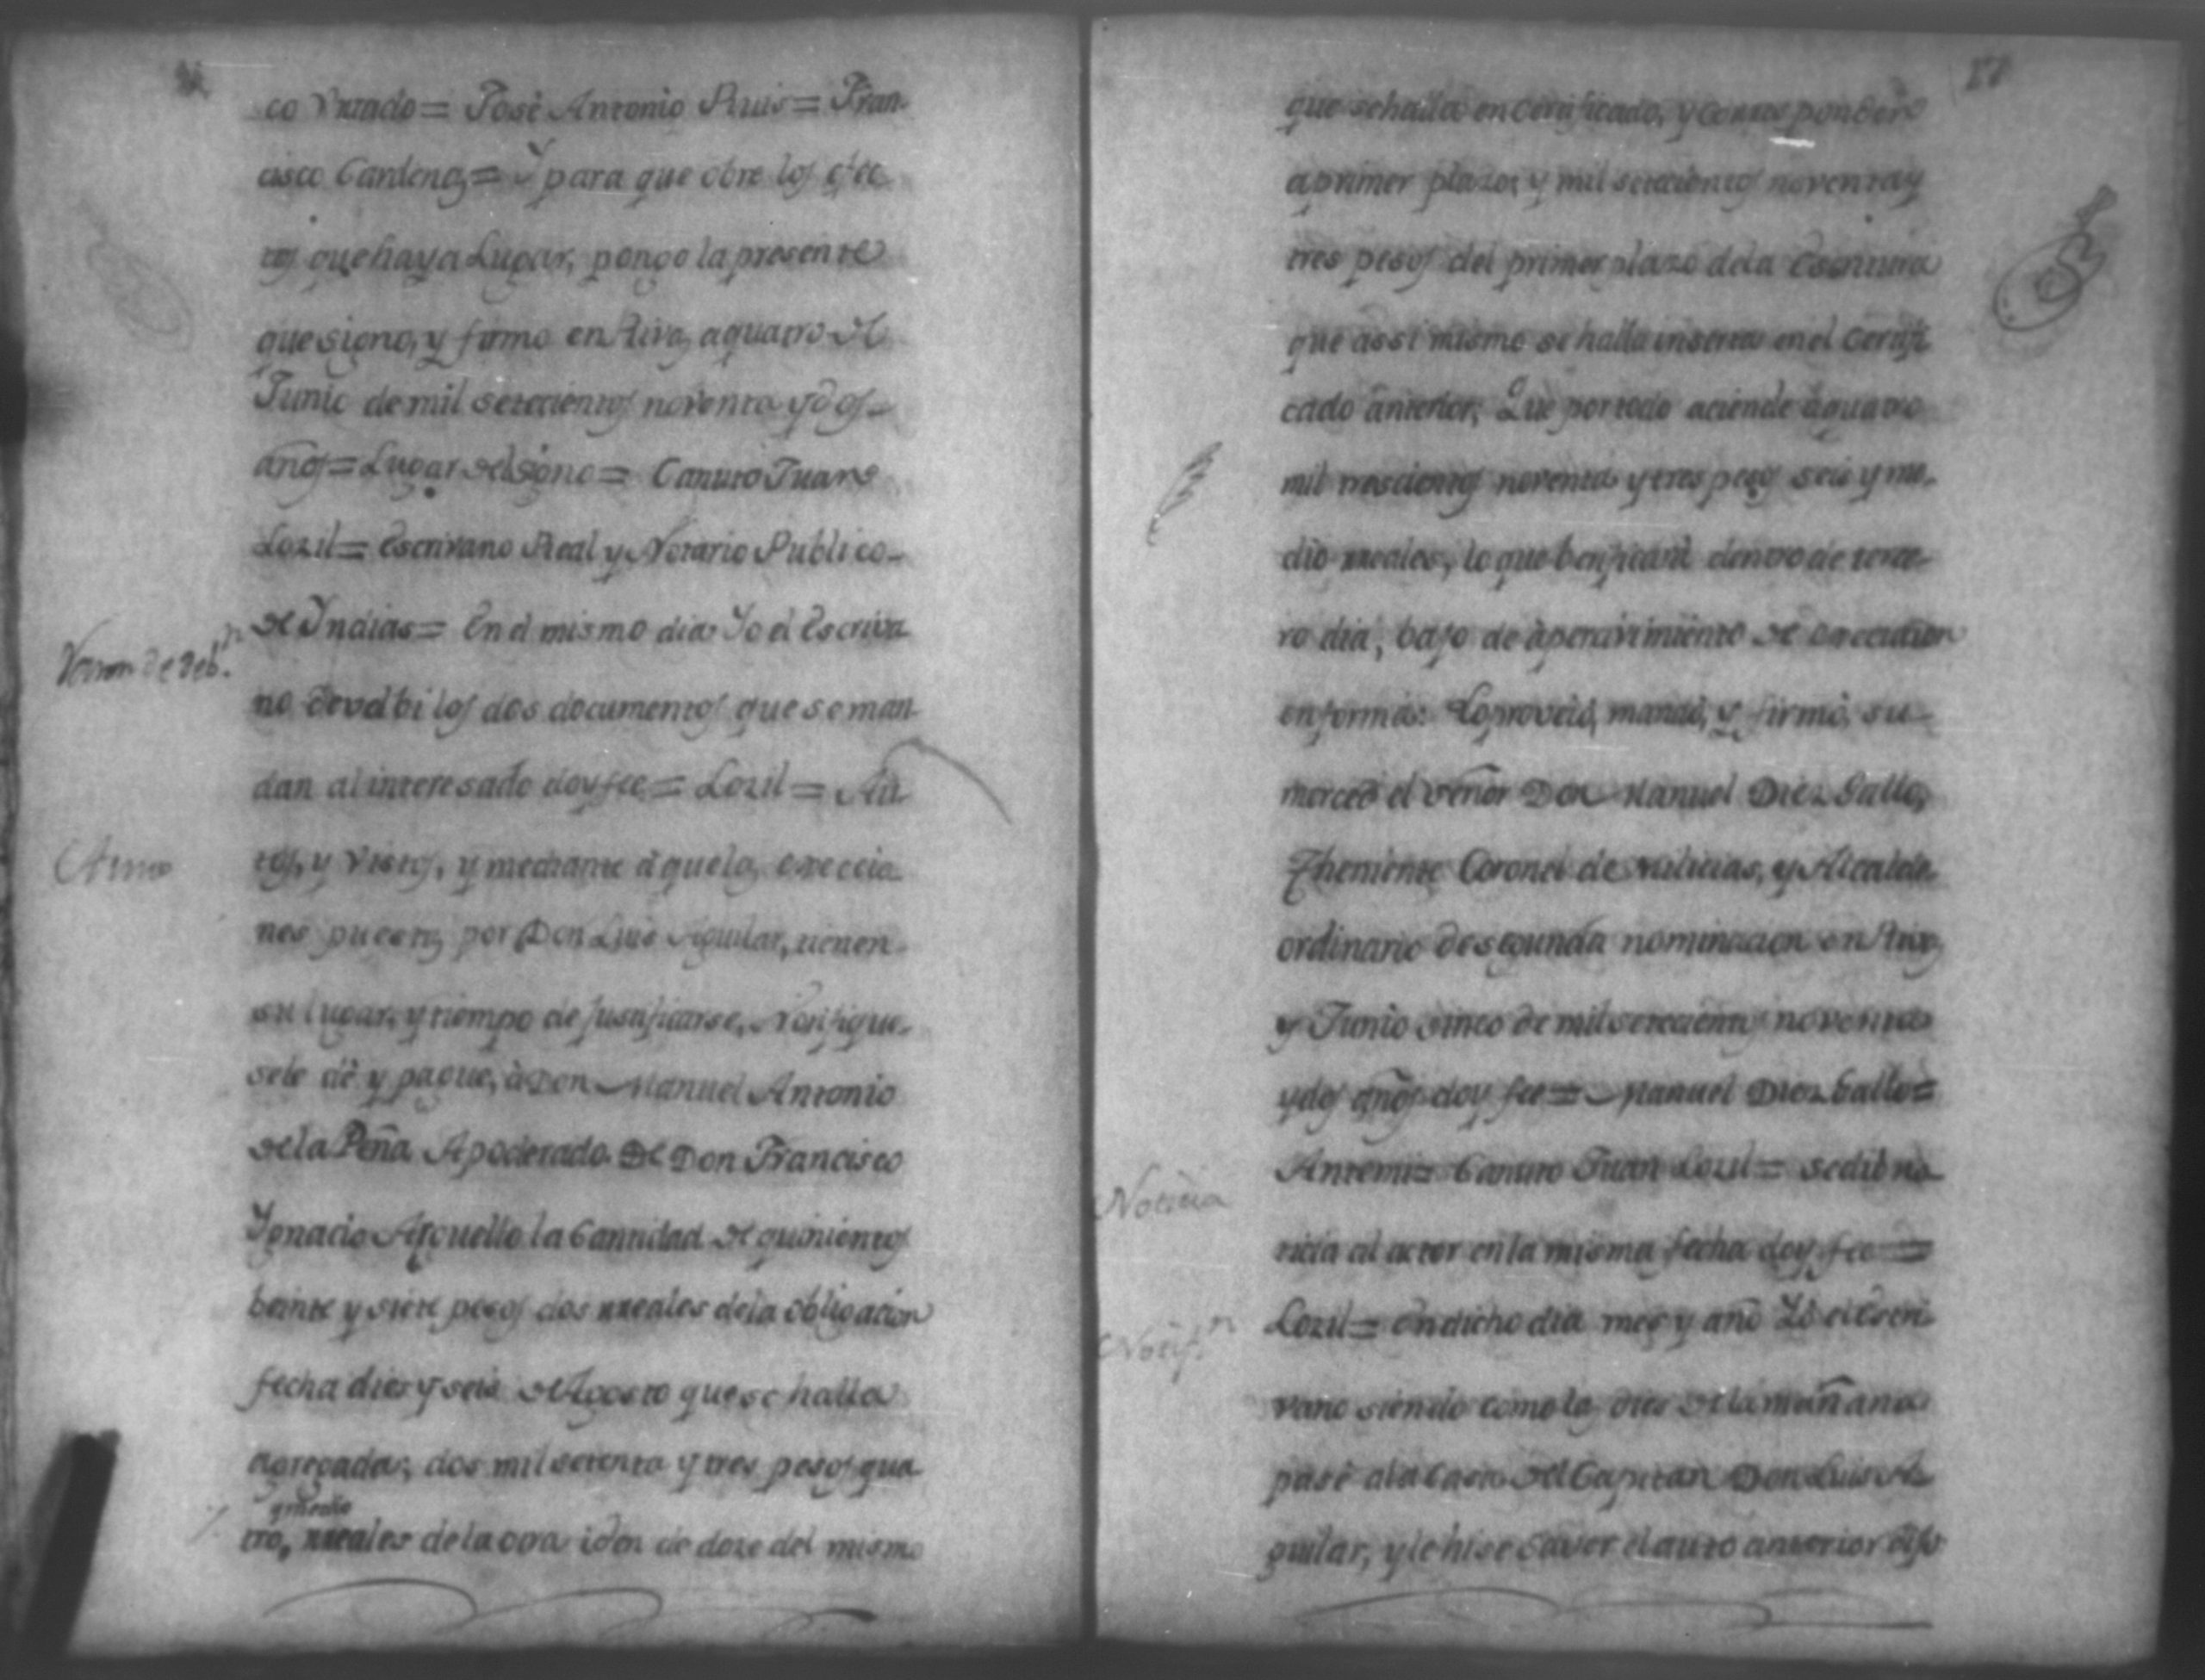 co Vrtado = José Antonio Ruis = Fran-
cisco Cardenas = Y para que obre los efec
tos que haya Lugar, pongo la presente
que signo, y firmo en Rivas a quatro de
Junio de mil setecientos noventa y dos
años = Lugar del signo = Canuto Juan
Lozil = Escrivano Real y Notario Publico
de Yndias = En el mismo dia Yo el Escriva
no devolbi los dos documentos que se man
dan al interesado doy fee = Lozil = Au
tos, y Vistos, y mediante á que las execcio
nes puestas por Don Luis Aguilar, tienen
su lugar, y tiempo de justificarse, Notifique-
sele dé y pague, à Don Manuel Antonio
de la Peña Apoderado de Don Francisco
Ygnacio Arguello la Cantidad de quinientos
beinte y siete pesos dos rreales de la obligacion
fecha dies y seis de Agosto que se halla
agregada; dos mil setenta y tres pesos qua
tro, rreales de la otra iden de doze del mismo
17
que se halla en Cerificado, y Corresponden
a primer plazo, y mil setecientos noventa y
tres pesos del primer plazo dela Escritura
que assi mismo se halla inserta en el Certifi
cado anterior, Que por todo aciende à quatro
mil trescientos noventa y tres pesos seis y me-
dio rreales, lo que berificará dentro de terce-
ro dia, bajo de àpercivimiento de execucion
en forma: Lo proveió, mandó, y firmó, su
merced el Señor Don Manuel Diez Gallo,
Theniente Coronel de Milicias, y Alcalde
ordinario de segunda nominacion en Rivas
y Junio sinco de mil setecientos noventa
y dos años doy fee = Manuel Diez Gallo =
Antemi = Canuto Juan Lozil = se dió no
Noticia
ticia al actor en la misma fecha doy fee =
Notif.n
Lozil = En dicho dia mes y año Yo el Escri
vano siendo como las dies de la mañana
pasé a la Casa del Capitan Don Luis A
guilar, y le hise saver el auto anterior